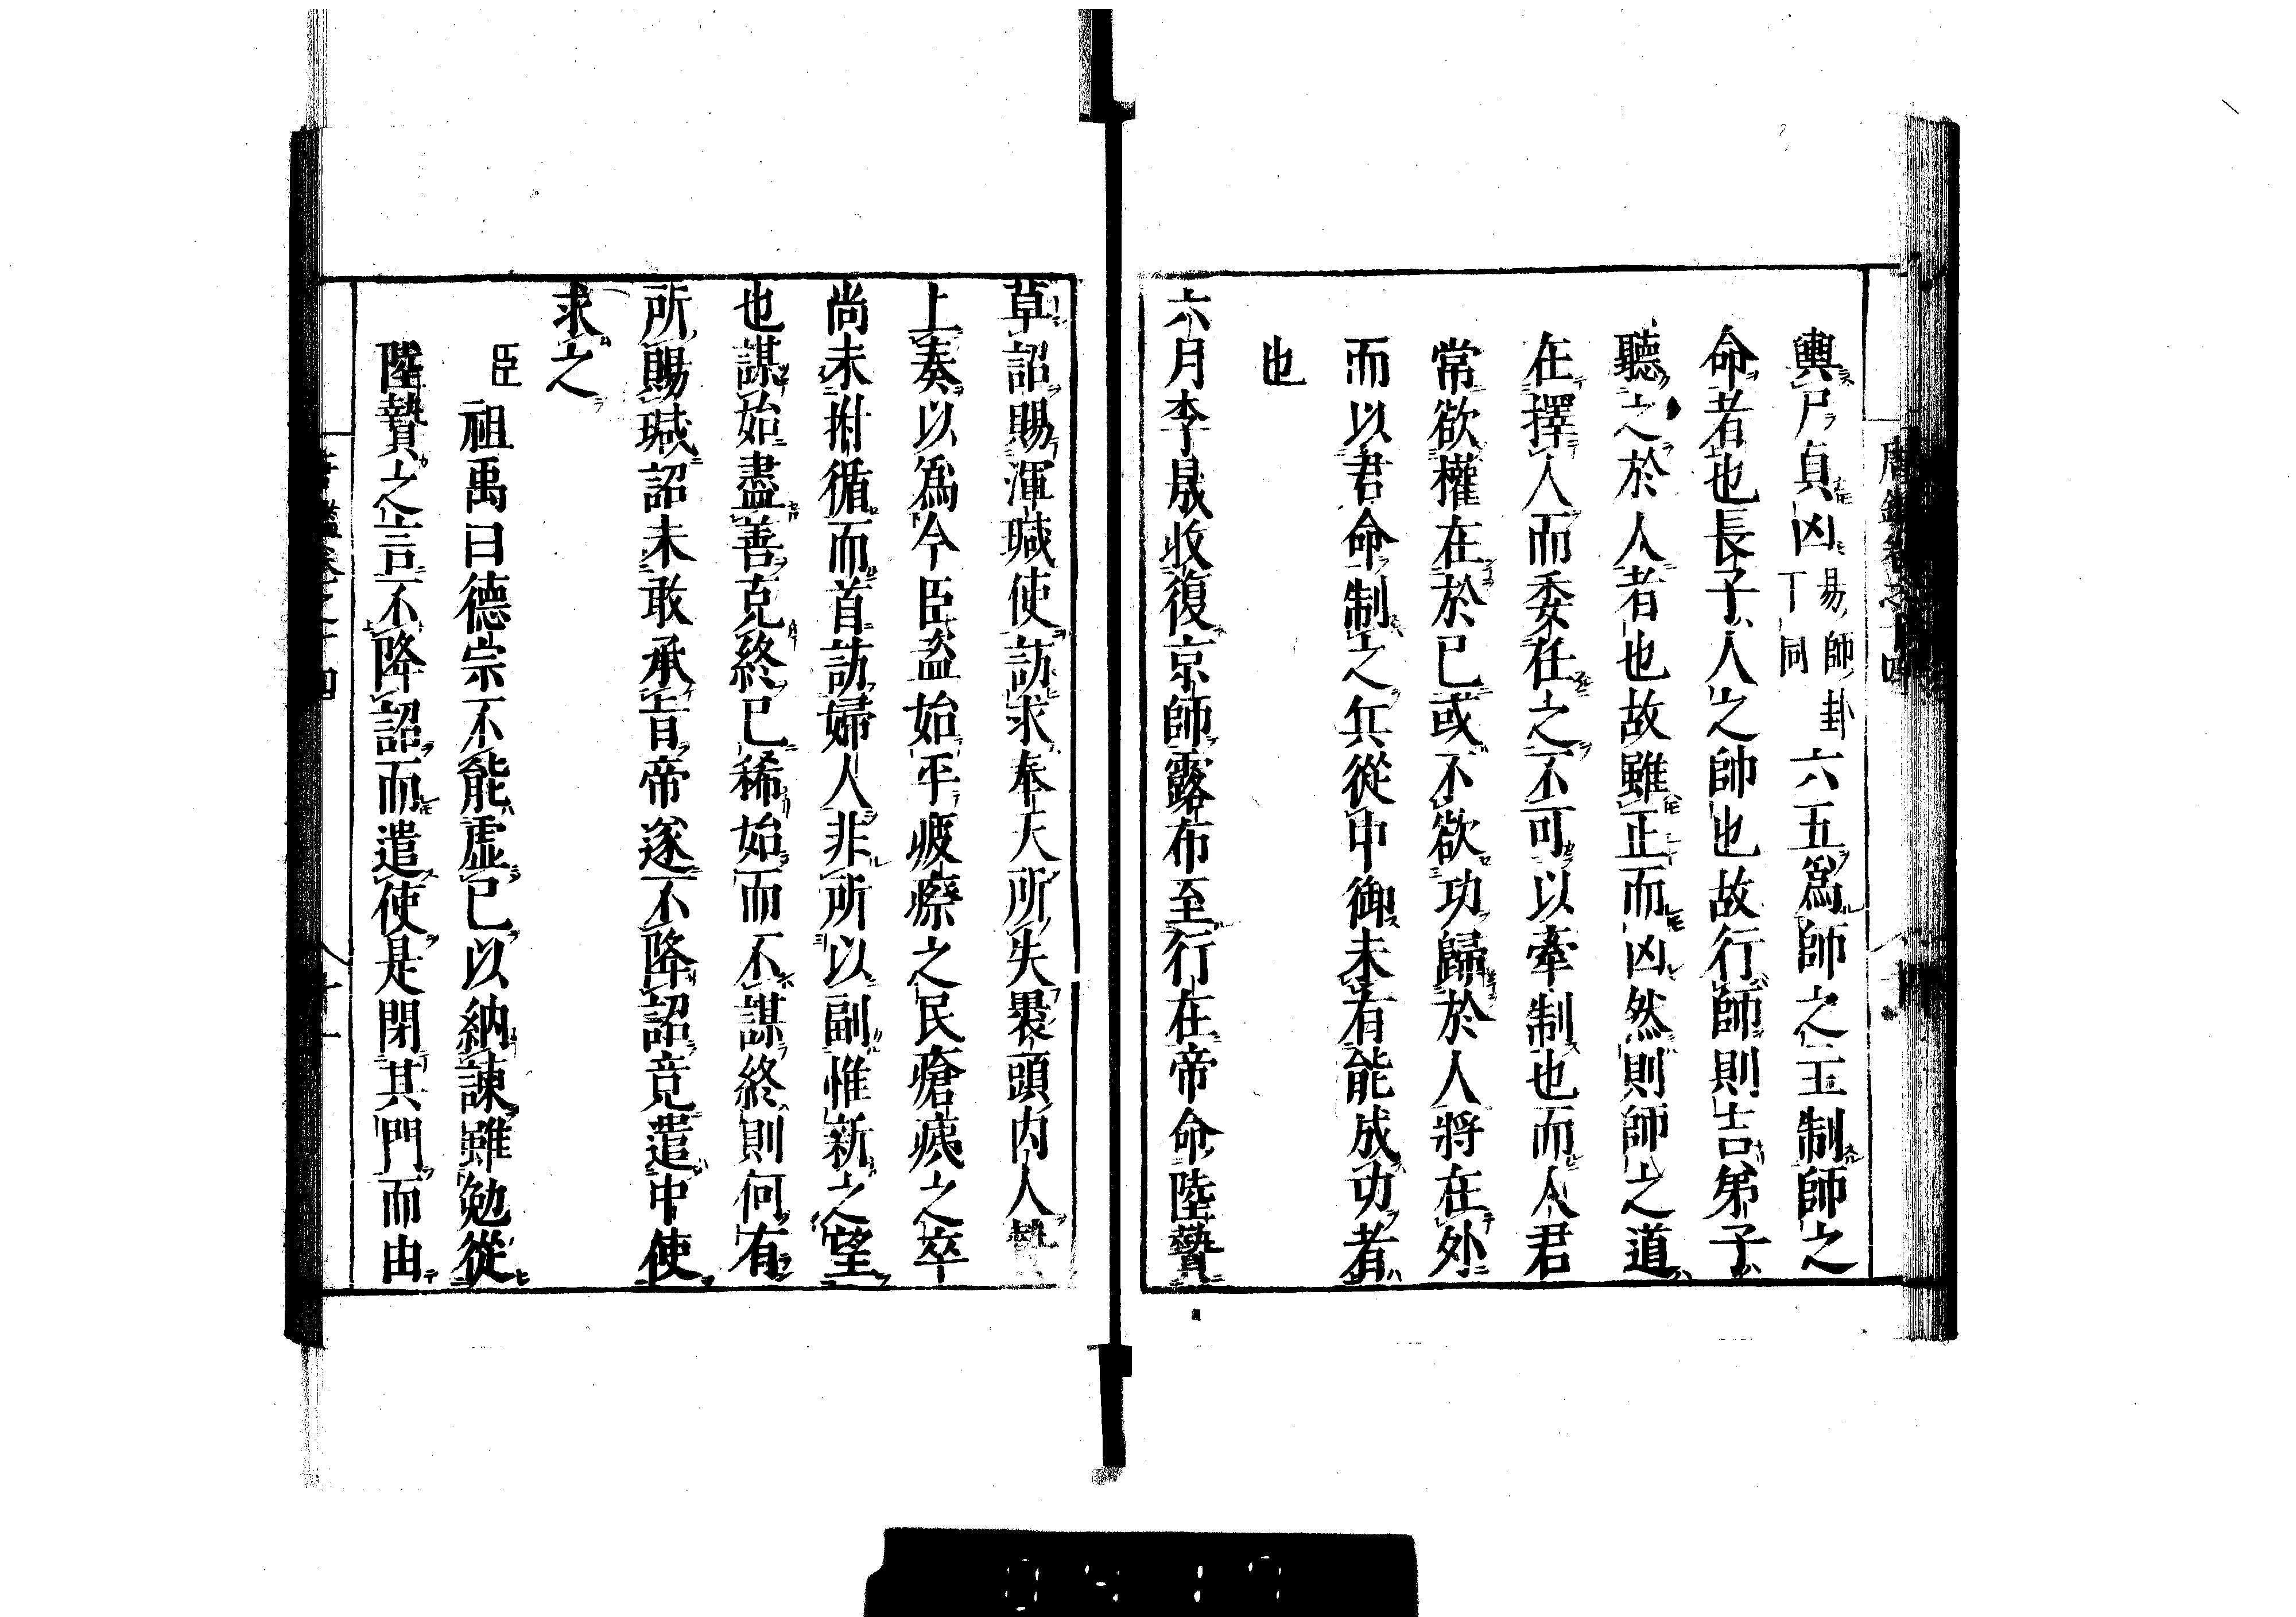 輿尸貞凶易師卦六五爲師之主制師之
丁同
命者也長子人之帥也故行師則吉弟子
聽之於人者也故雖正而凶然則師之道
在擇人而委任之不可以牽制也而人君
常欲權在於已或不欲功歸於人將在外
而以君命制之兵從中御未有能成功者
也
六月李晟收復京師露布至行在帝命陸贄
草詔賜渾瑊使訪求奉天所失褁頭内人贄
上奏以爲今臣盗始平疲瘵之民瘡痍之卒
尚未拊循而首訪婦人非所以副惟新之望
也謀始盡善克終已稀始而不謀終則何有
所賜瑊詔未敢承旨帝遂不降詔竟遣中使
求之
臣祖禹曰德宗不能虛已以納諫雖勉從
陸贄之言不降詔而遣使是閉其門而由